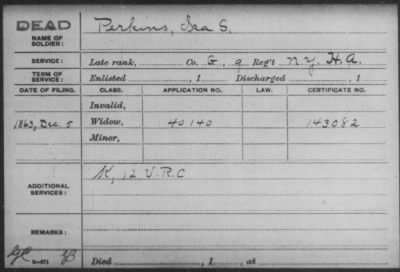 DEAD
NAME OF SOLDIER: Perkins, Ira S.
SERVICE: Late rank, Co. G, 9 Reg't N.Y. H.A.
TERM OF SERVICE: Enlisted , 1 Discharged , 1
DATE OF FILING. CLASS. APPLICATION NO. LAW. CERTIFICATE NO.
Invalid,
1863, Dec. 5 Widow, 40140 143082
Minor,
ADDITIONAL SERVICES: K, 12 V.R.C
REMARKS:
Died , 1 , at